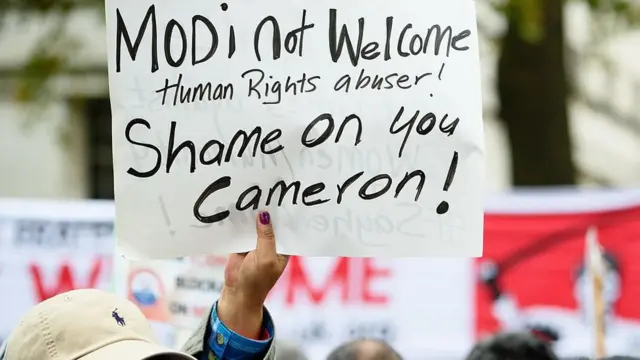 MODi not Welcome
Human Rights abuser!
Shame on you
Cameron!